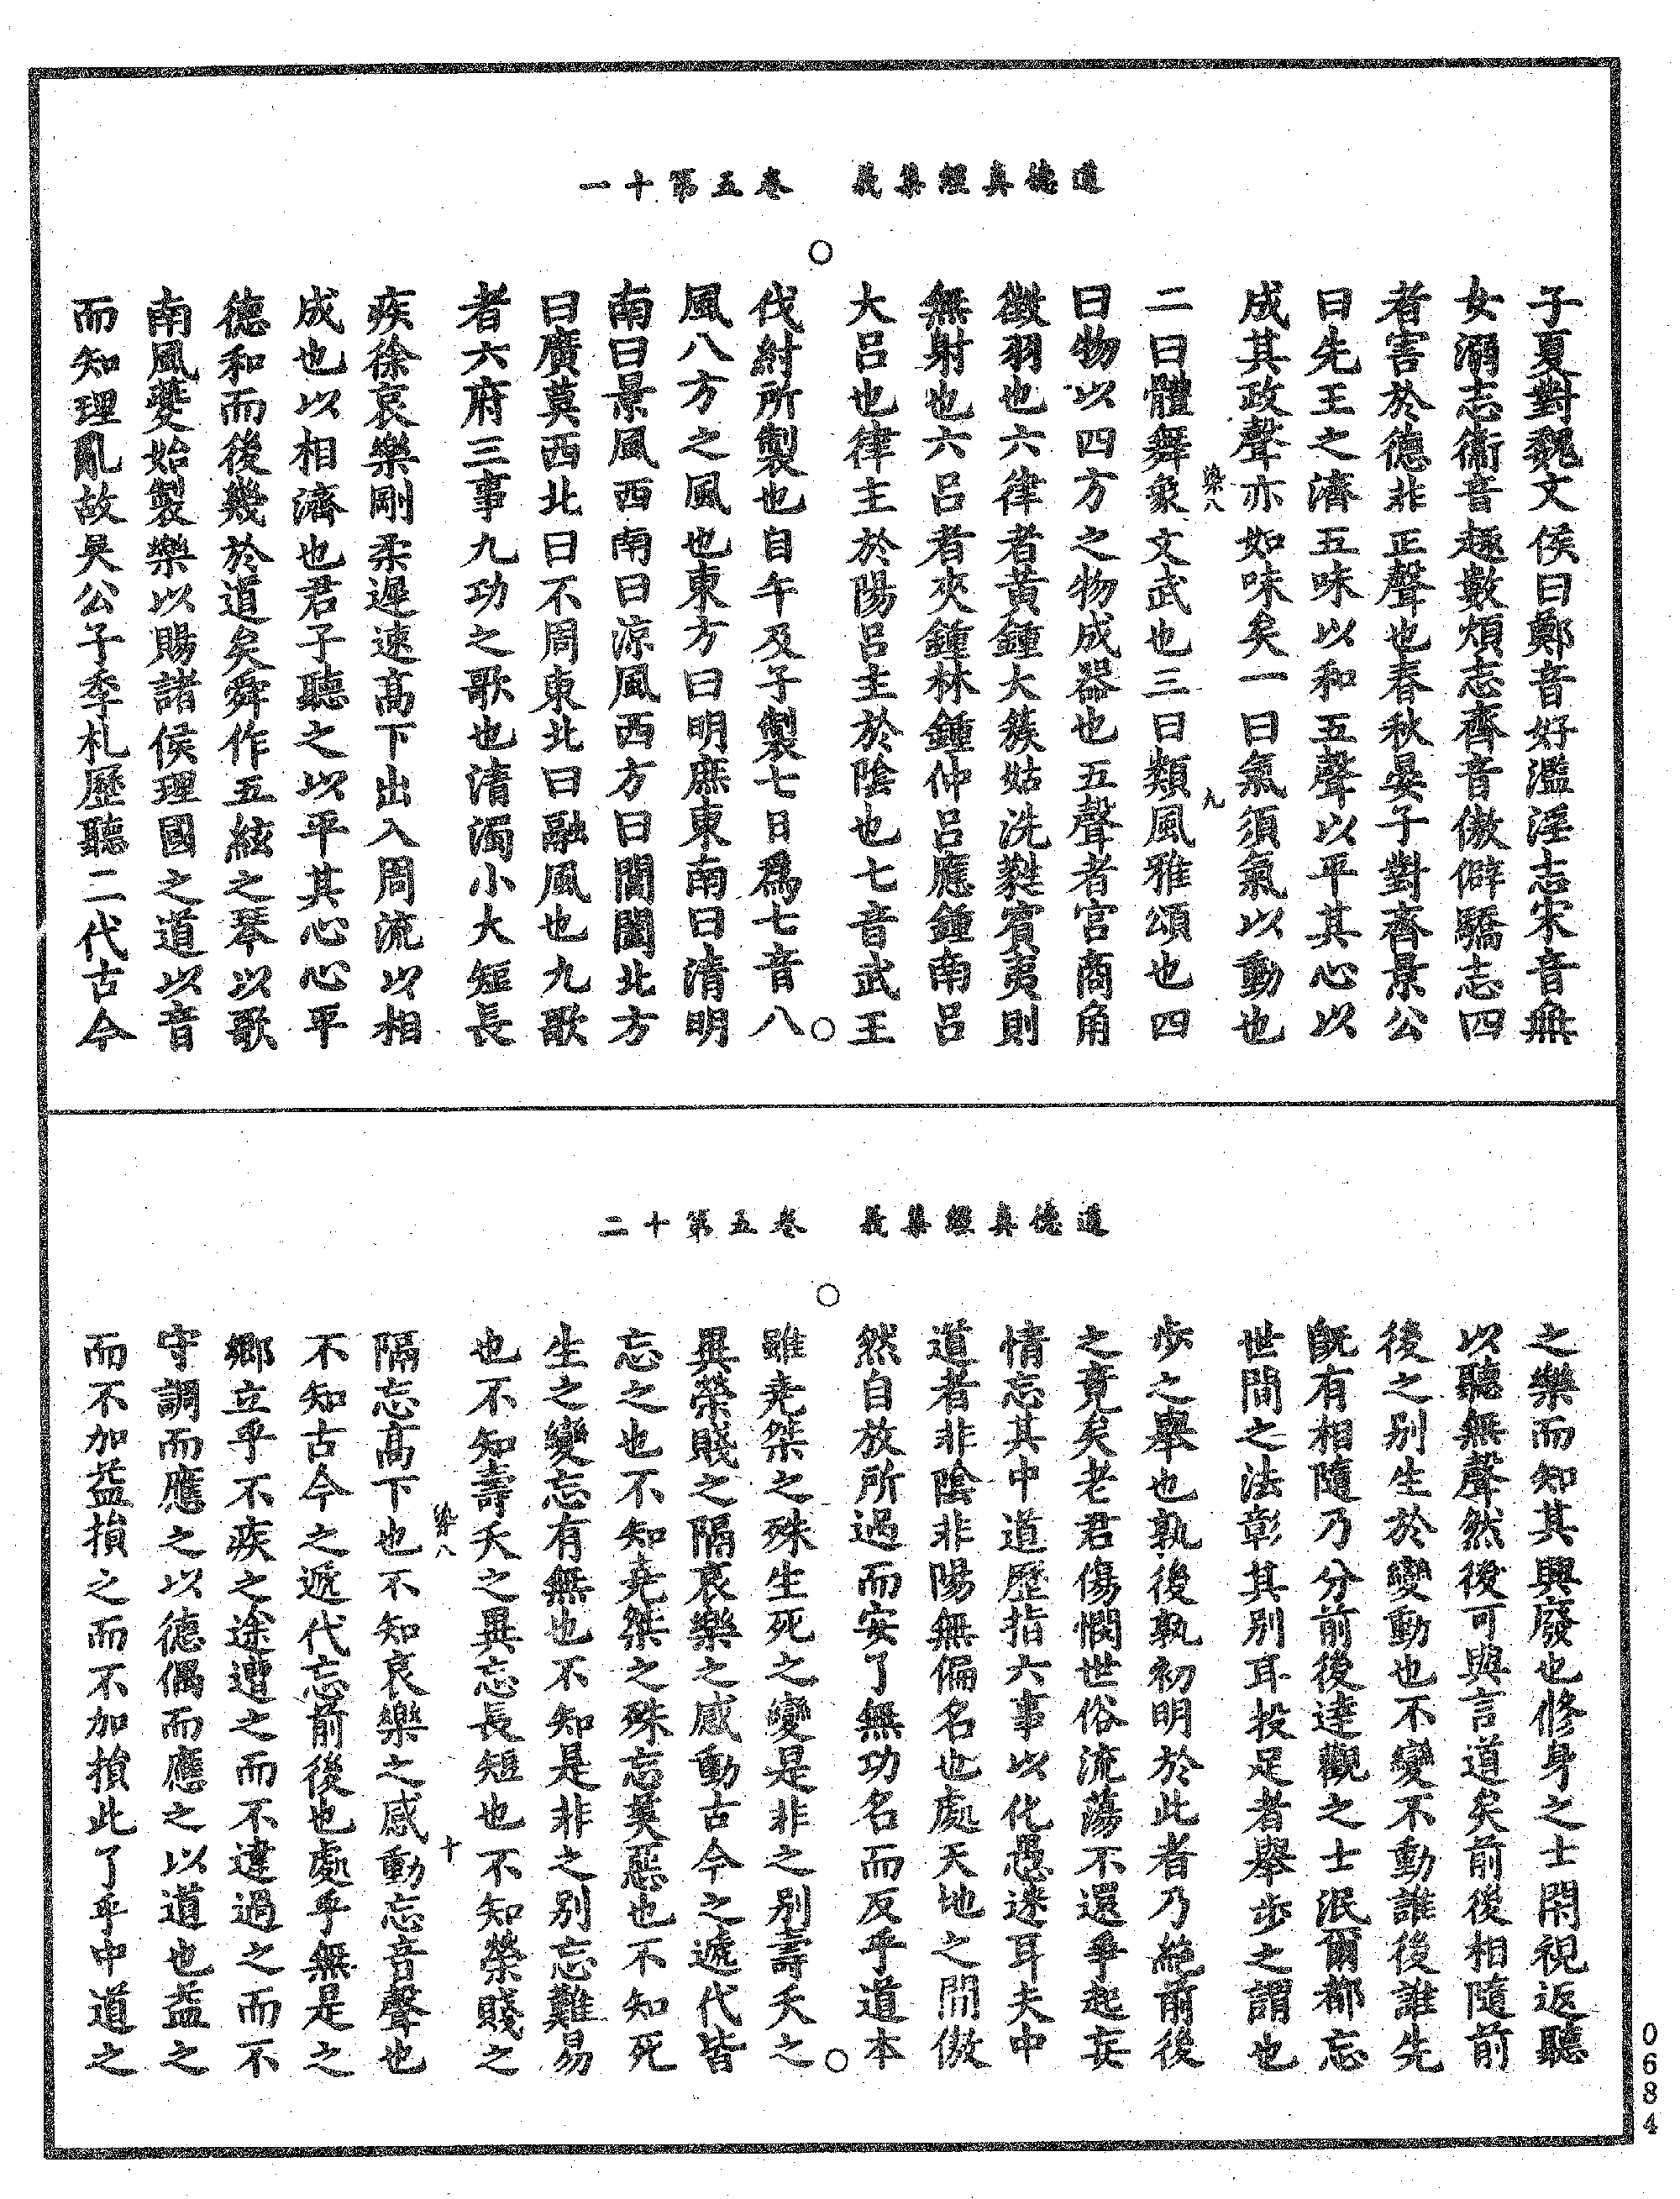 道德真經集義　卷五第十一
子夏對魏文侯曰鄭音好濫淫志宋音無
女溺志衞音趣數煩志齊音傲僻驕志四
者害於德非正聲也春秋晏子對齊景公
曰先王之濟五味以和五聲以平其心以
成其政聲亦如味矣一曰氣須氣以動也
染八
九
二曰體舞象文武也三曰類風雅頌也四
曰物以四方之物成器也五聲者宮商角
徵羽也六律者黃鍾大簇姑洗蕤賓夷則
無射也六呂者夾鍾林鍾仲呂應鍾南呂
大呂也律主於陽呂主於陰也七音武王
伐紂所製也自午及子製七日爲七音八
風八方之風也東方曰明庶東南曰清明
南曰景風西南曰涼風西方曰閶闔北方
曰廣莫西北曰不周東北曰融風也九歌
者六府三事九功之歌也清濁小大短長
疾徐哀樂剛柔遲速高下出入周流以相
成也以相濟也君子聽之以平其心心平
德和而後幾於道矣舜作五絃之琴以歌
南風夔始製樂以賜諸侯理國之道以音
而知理亂故吳公子季札歷聽二代古今
道德真經集義　卷五第十二
之樂而知其興廢也修身之士閑視返聽
以聽無聲然後可與言道矣前後相隨前
後之別生於變動也不變不動誰後誰先
旣有相隨乃分前後達觀之士泯爾都忘
世間之法彰其別耳投足者舉步之謂也
步之舉也孰後孰初明於此者乃絕前後
之竟矣老君傷憫世俗流蕩不還爭起妄
情忘其中道歷指六事以化愚迷耳夫中
道者非陰非陽無偏名也處天地之間傲
然自放所過而安了無功名而反乎道本
雖堯桀之殊生死之變是非之別壽夭之
異榮賤之隔哀樂之感動古今之遞代皆
忘之也不知堯桀之殊忘美惡也不知死
生之變忘有無也不知是非之別忘難易
也不知壽夭之異忘長短也不知榮賤之
染八
十
隔忘高下也不知哀樂之感動忘音聲也
不知古今之遞代忘前後也處乎無是之
鄉立乎不疾之途遭之而不違過之而不
守調而應之以德偶而應之以道也益之
而不加益損之而不加損此了乎中道之
0684